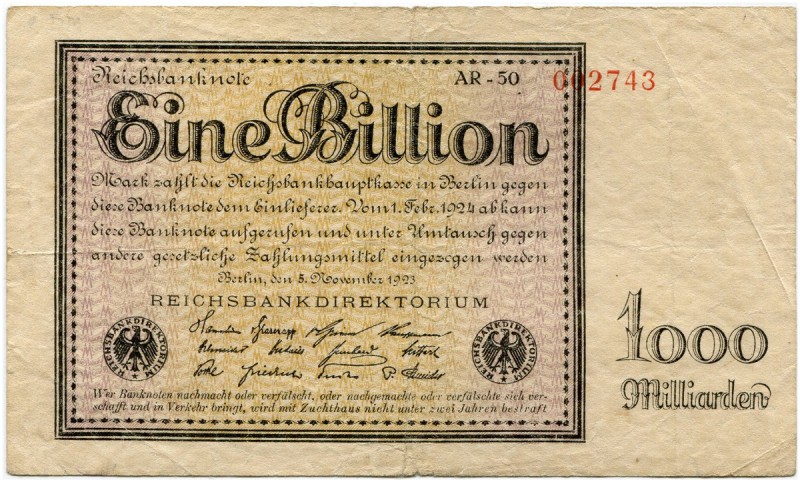 Reichsbanknote AR - 50 002743
Eine Billion
Mark zahlt die Reichsbankhauptkasse in Berlin gegen
diese Banknote dem Einlieferer. Vom 1. Febr. 1924 ab kann
diese Banknote aufgerufen und unter Umtausch gegen
andere gesetzliche Zahlungsmittel eingezogen werden
Berlin, den 5. November 1923
REICHSBANKDIREKTORIUM
REICHSBANKDIREKTORIUM
REICHSBANKDIREKTORIUM
Wer Banknoten nachmacht oder verfälscht, oder nachgemachte oder verfälschte sich ver-
schafft und in Verkehr bringt, wird mit Zuchthaus nicht unter zwei Jahren bestraft
1000
Milliarden